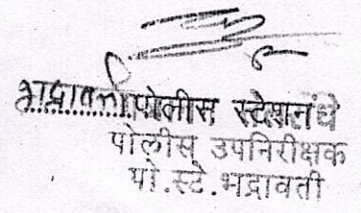 भद्रावती पोलीस स्टेशनंधे
पोलीस उपनिरीक्षक
पो.स्टे.भद्रावती